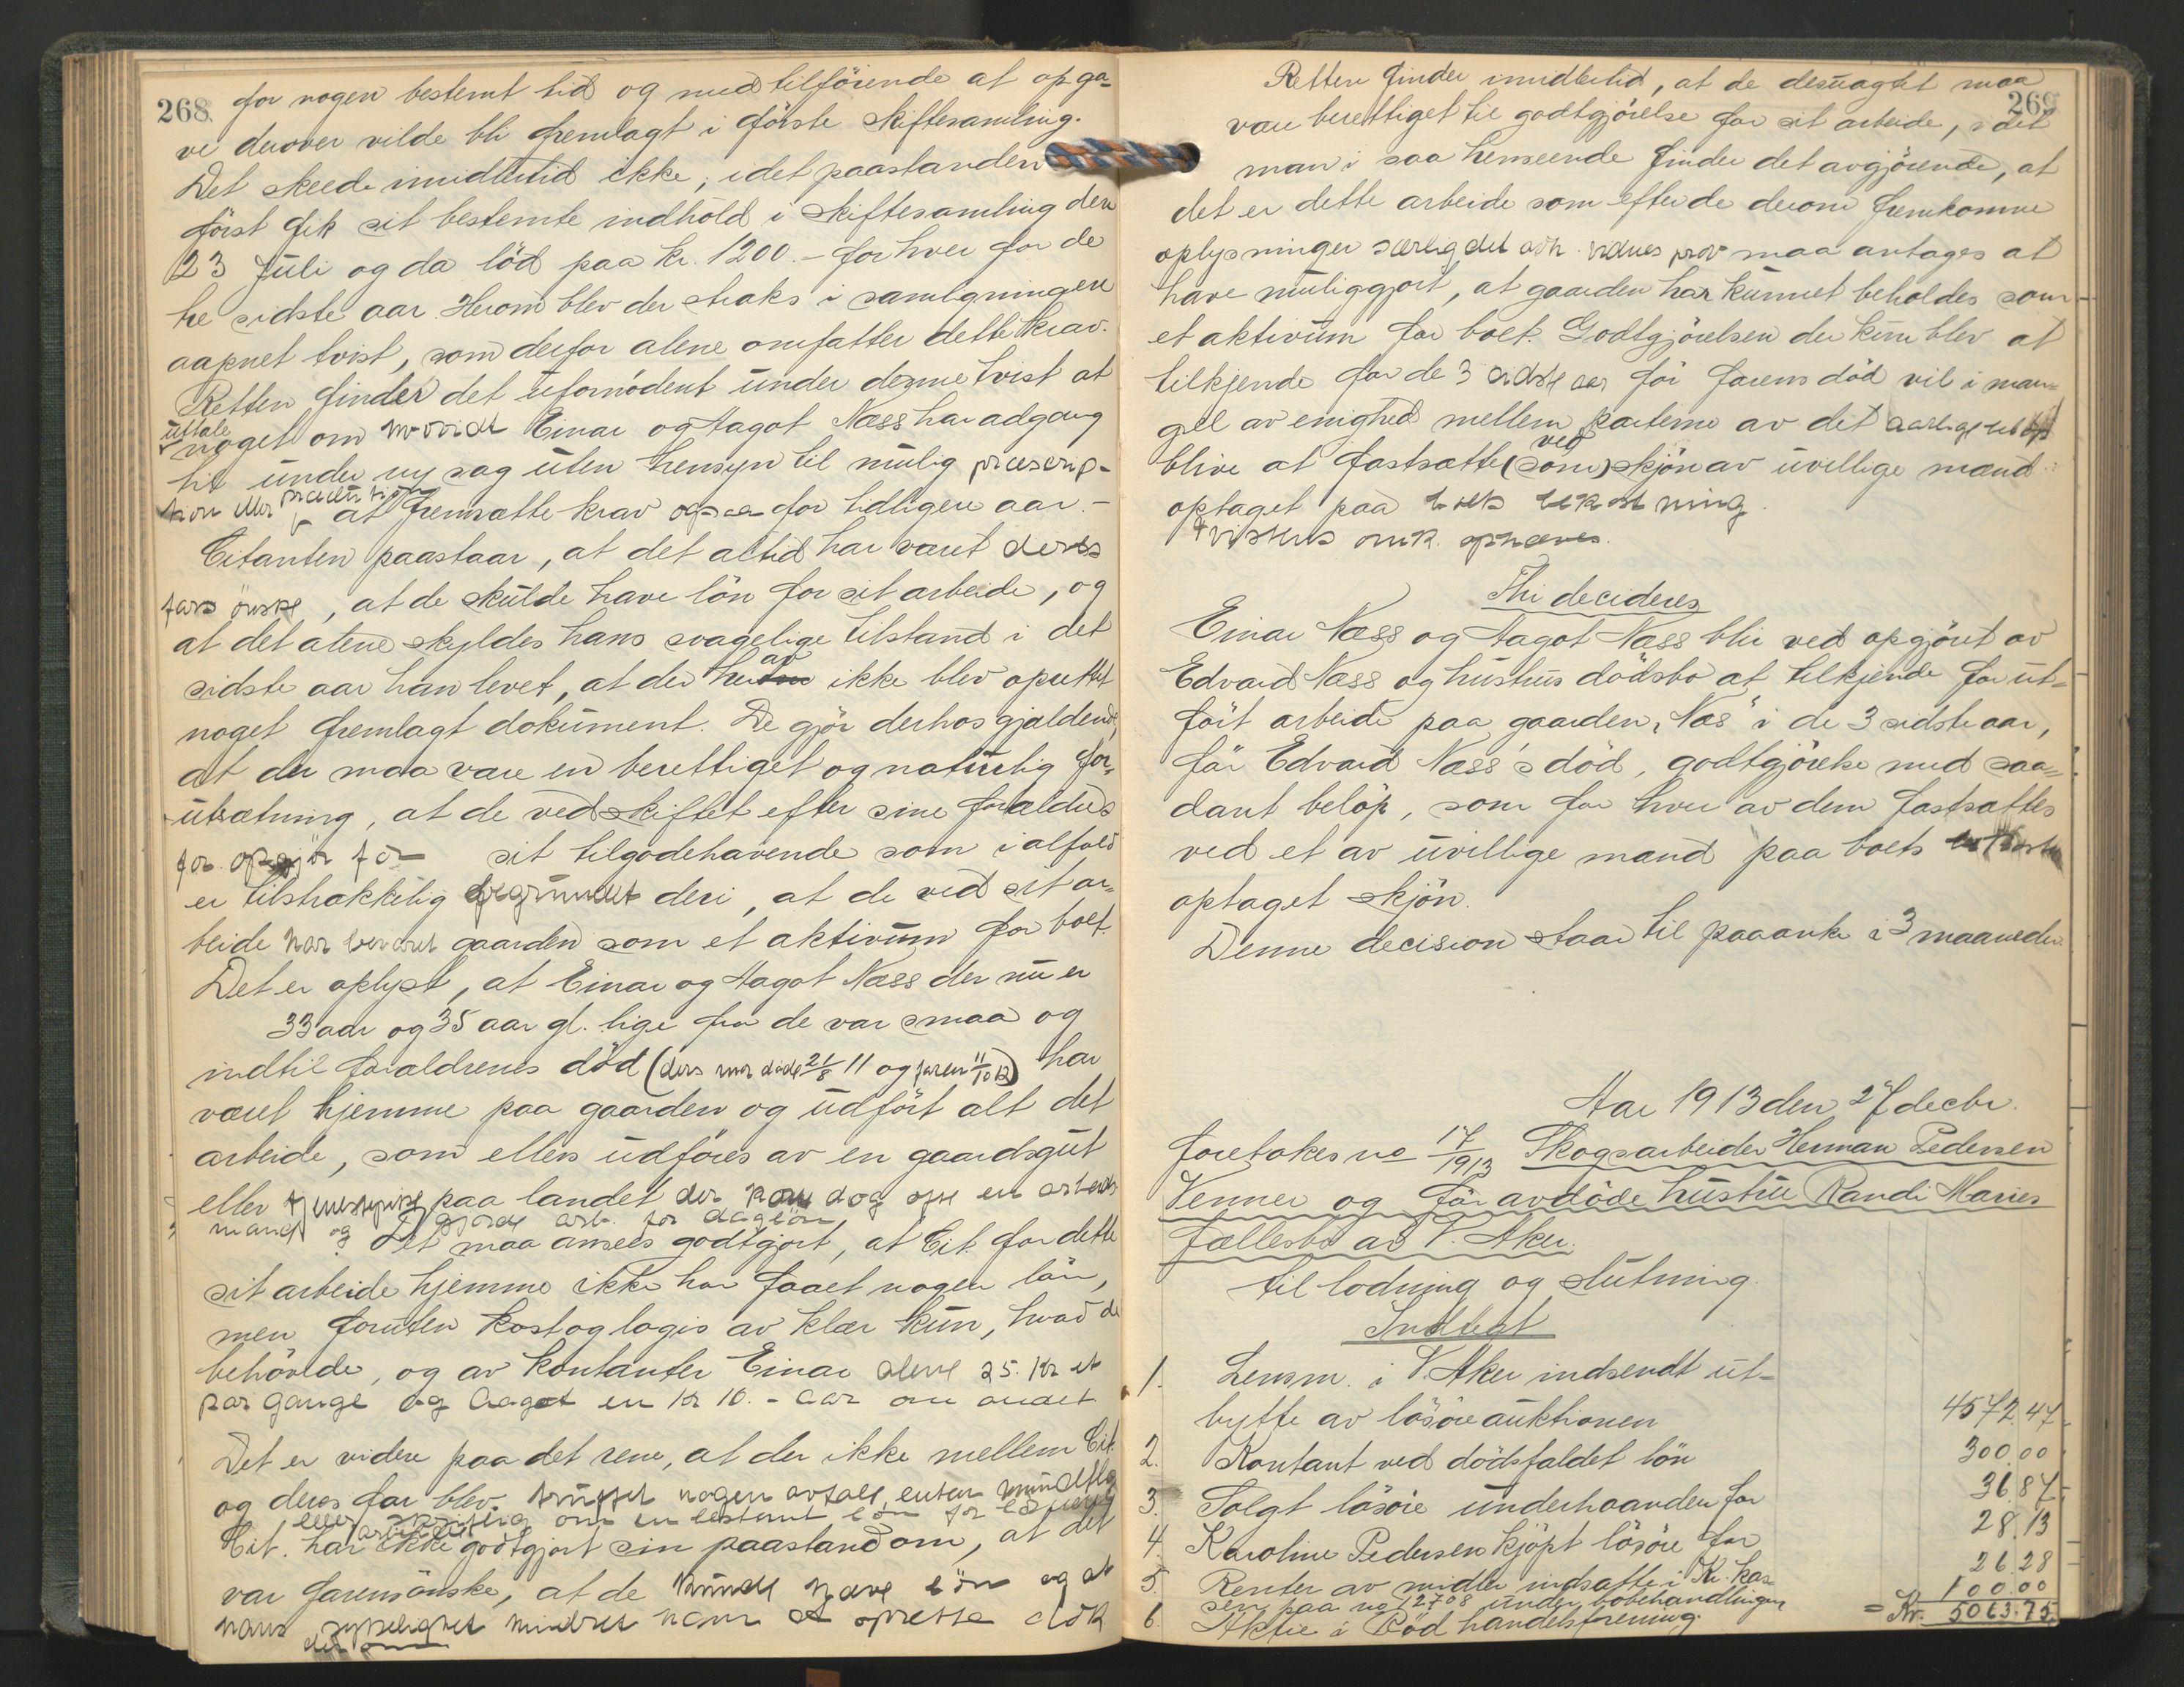 268
for nogen bestemt tid og med tilförende at opga-
ve derover vilde bli fremlagt i förste skiftesamling.
Det skeede imidlertid ikke, idet paastanden
först fik sit bestemte indhold i skiftesamling den
23 Juli og da löd paa kr. 1200.- for hver for de
tre sidste aar. Herom blev der straks i samlingen
aapnet tvist, som derfor alene omfatter dette krav.
Retten finder det ufornödent under denne tvist at
uttale
noget om hvorvidt Einar og Aagot Næss har adgang
til under ny sag uten hensyn til mulig præscrip-
tion eller at fremsætte krav ogsaa for tidligere aar.-
Citanten paastaar, at det altid har været deres
fars önske, at de skulde have lön for sit arbeide, og
at det alene skyldes hans svagelige tilstand i det
av
sidste aar han levet, at der ikke blev oprettet
noget fremlagt dokument. De gjör derhos gjældende,
at der maa være en berettiget og naturlig for-
utsætning, at de ved skiftet efter sine forældre
faar opgjör for sit tilgodehavende som ialfald
er tilstrækkelig begrundet deri, at de ved sit ar-
beide har bevaret gaarden som et aktivum for boet.
Det er oplyst, at Einar og Aagot Næss der nu er
33 aar og 35 aar gl. lige fra de var smaa og
indtil forældrenes död (deres mor döde 21/8 11 og faren 11/10 12) har
været hjemme paa gaarden og udfört alt det
arbeide, som ellers udföres av en gaardsgut
eller tjenestepike paa landet der kom dog ofte en arbeids-
mand og gjorde arb. for daglön
Det maa ansees godtgjort, at Cit. for dette
sit arbeide hjemme ikke har faaet nogen lön,
men foruten kost og logis av klær kun, hvad de
behövde, og av kontanter Einar alene 25. kr et
par gange og Aagot en kr 10.- aar om andet
Det er videre paa det rene, at der ikke mellem Cit.
og deres far blev truffet nogen avtale, enten mundtlig
eller skriftlig om en bestemt lön for
arbeidet
Cit. har ikke godtgjort sin paastand om, at det
var farens önske, at de kunde have lön og at
hans sykelighet hindret ham at oprette dok
derom
269
Retten finder imidlertid, at de desuagtet maa
være berettiget til godtgjörelse for sit arbeide, idet
man i saa henseende finder det avgjörende, at
det er dette arbeide som efter de derom fremkomne
oplysninger særlig det vidnes prov maa antages at
have muliggjort, at gaarden har kunnet beholdes som
et aktivum for boet. Godtgjörelsen der kun blev at
tilkjende for de 3 sidste aar för farens död vil i man-
gel av enighed mellem parterne av det aarlige
ved
blive at fastsætte (som) skjön av uvillige mænd
optaget paa boets bekostning.
Tvistens omk. ophæves.
Thi decideres
Einar Næss og Aagot Næss blir ved opgjöret av
Edvard Næss og hustrus dödsbo at tilkjende for ut-
fört arbeide paa gaarden "Næs" i de 3 sidste aar,
för Edvard Næss's död, godtgjörelse med saa-
dant belöp, som for hver av dem fastsættes
ved et av uvillige mænd paa boets
optaget skjön.
Denne decision staar til paaanke i 3 maaneder.
Aar 1913 den 27 decbr.
foretokes no 17/1913 Skogsarbeider Herman Pedersen
Venner og för avdöde hustru Randi Maries
fællesbo av V. Aker.
til lodning og slutning.
Indtægt
1. Lensm. i V. Aker indsendt ut-
bytte av lösöreauktionen 4572.47
2. Kontant ved dödsfaldet lön 300.00
3. Solgt lösöre underhaanden for 36.87
4. Karoline Pedersen kjöpt lösöre for 28.13
5. Renter av midler indsatte i Kr. kas-
sen paa no 12708 under bobehandlingen 26.28
6. Aktie i Röd handelsforening. 100.00
= Kr. 5063.75